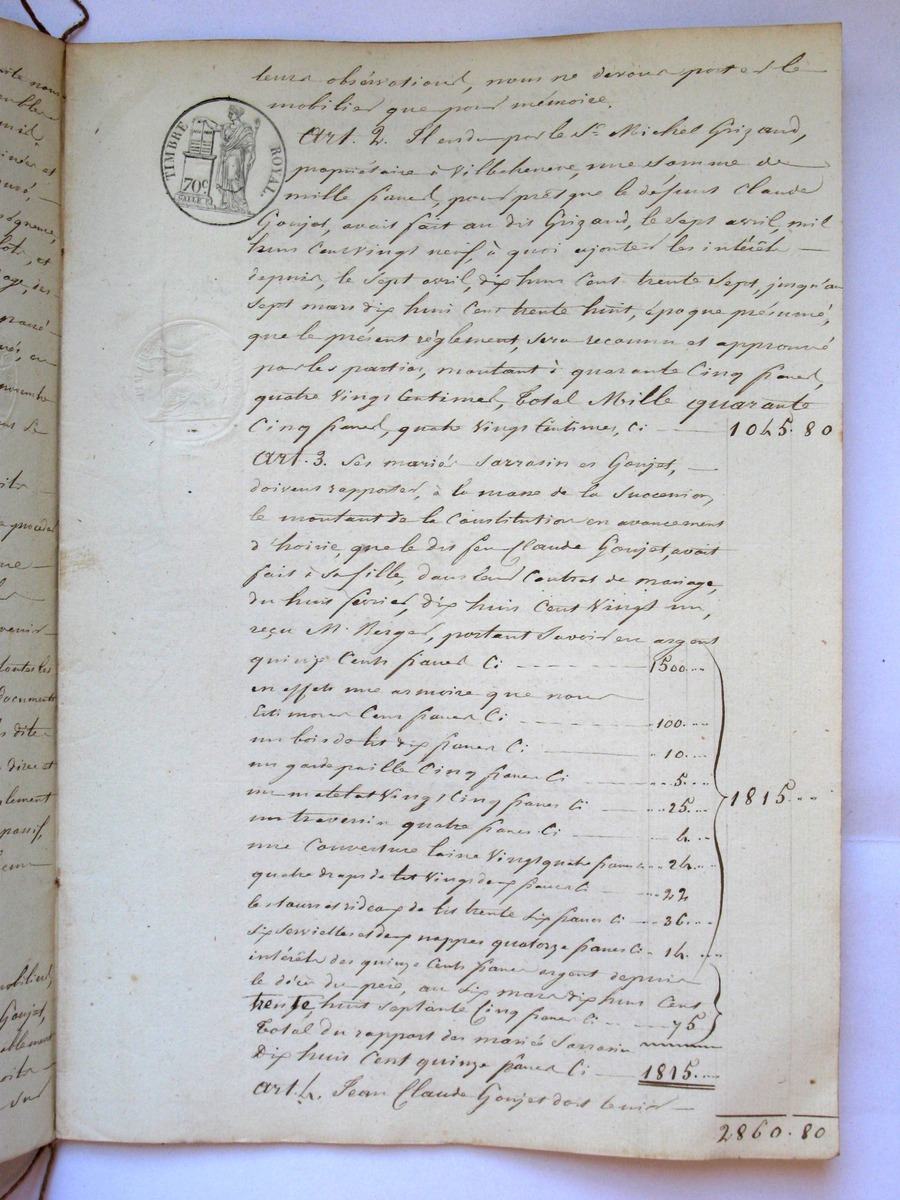 leurs observations, nous ne devons porter le
mobilier que pour mémoire.
TIMBRE ROYAL
70c
Art. 2. Il est du par le Sr. Michel Grizand,
propriétaire à Villechenève, une somme de
mille francs, pour prêt que le défunt Claude
Goujet, avait fait au dit Grizand, le sept avril, mil
huit cent vingt neuf, à quoi ajouter les intérêts —
depuis, le sept avril, dix huit cent trente sept, jusqu'au
sept mars dix huit cent trente huit, époque présumé,
que le présent règlement, sera reconnu et approuvé
par les parties, montant à quarante cinq francs,
quatre vingt centimes, Total Mille quarante
Cinq francs, quatre vingt centimes, Ci — 1045. 80
Art. 3. Les mariés Sarrasin et Goujet, —
doivent rapporter, à la masse de la succession,
le montant de la Constitution en avancement
d'hoirie, que le dit feu Claude Goujet, avait
fait à sa fille, dans leur Contrat de mariage,
du huit février, dix huit cent vingt un,
reçu Me. Berger, portant savoir en argent
quinze Cents francs Ci — 1500...
en effets une armoire que nous
Estimons Cent francs Ci — 100...
un bois de lit dix francs Ci — 10...
un garde paille Cinq francs Ci — 5...
un matelat Vingt Cinq francs Ci — 25...
un traversin quatre francs Ci — 4...
une Couverture laine Vingt quatre francs 24...
quatre draps de lit Vingt deux francs Ci — 22
les tours et rideaux de lit trente six francs Ci — 36...
six serviettes et deux nappes quatorze francs Ci — 14...
1815...
intérêts des quinze Cents francs argent depuis
le décès du père, au six mars dix huit Cent
trente huit septante Cinq francs Ci — 75
Total du rapport des mariés Sarrasin
Dix huit Cent quinze francs Ci — 1815...
Art. 4. Jean Claude Goujet doit tenir —
2860. 80